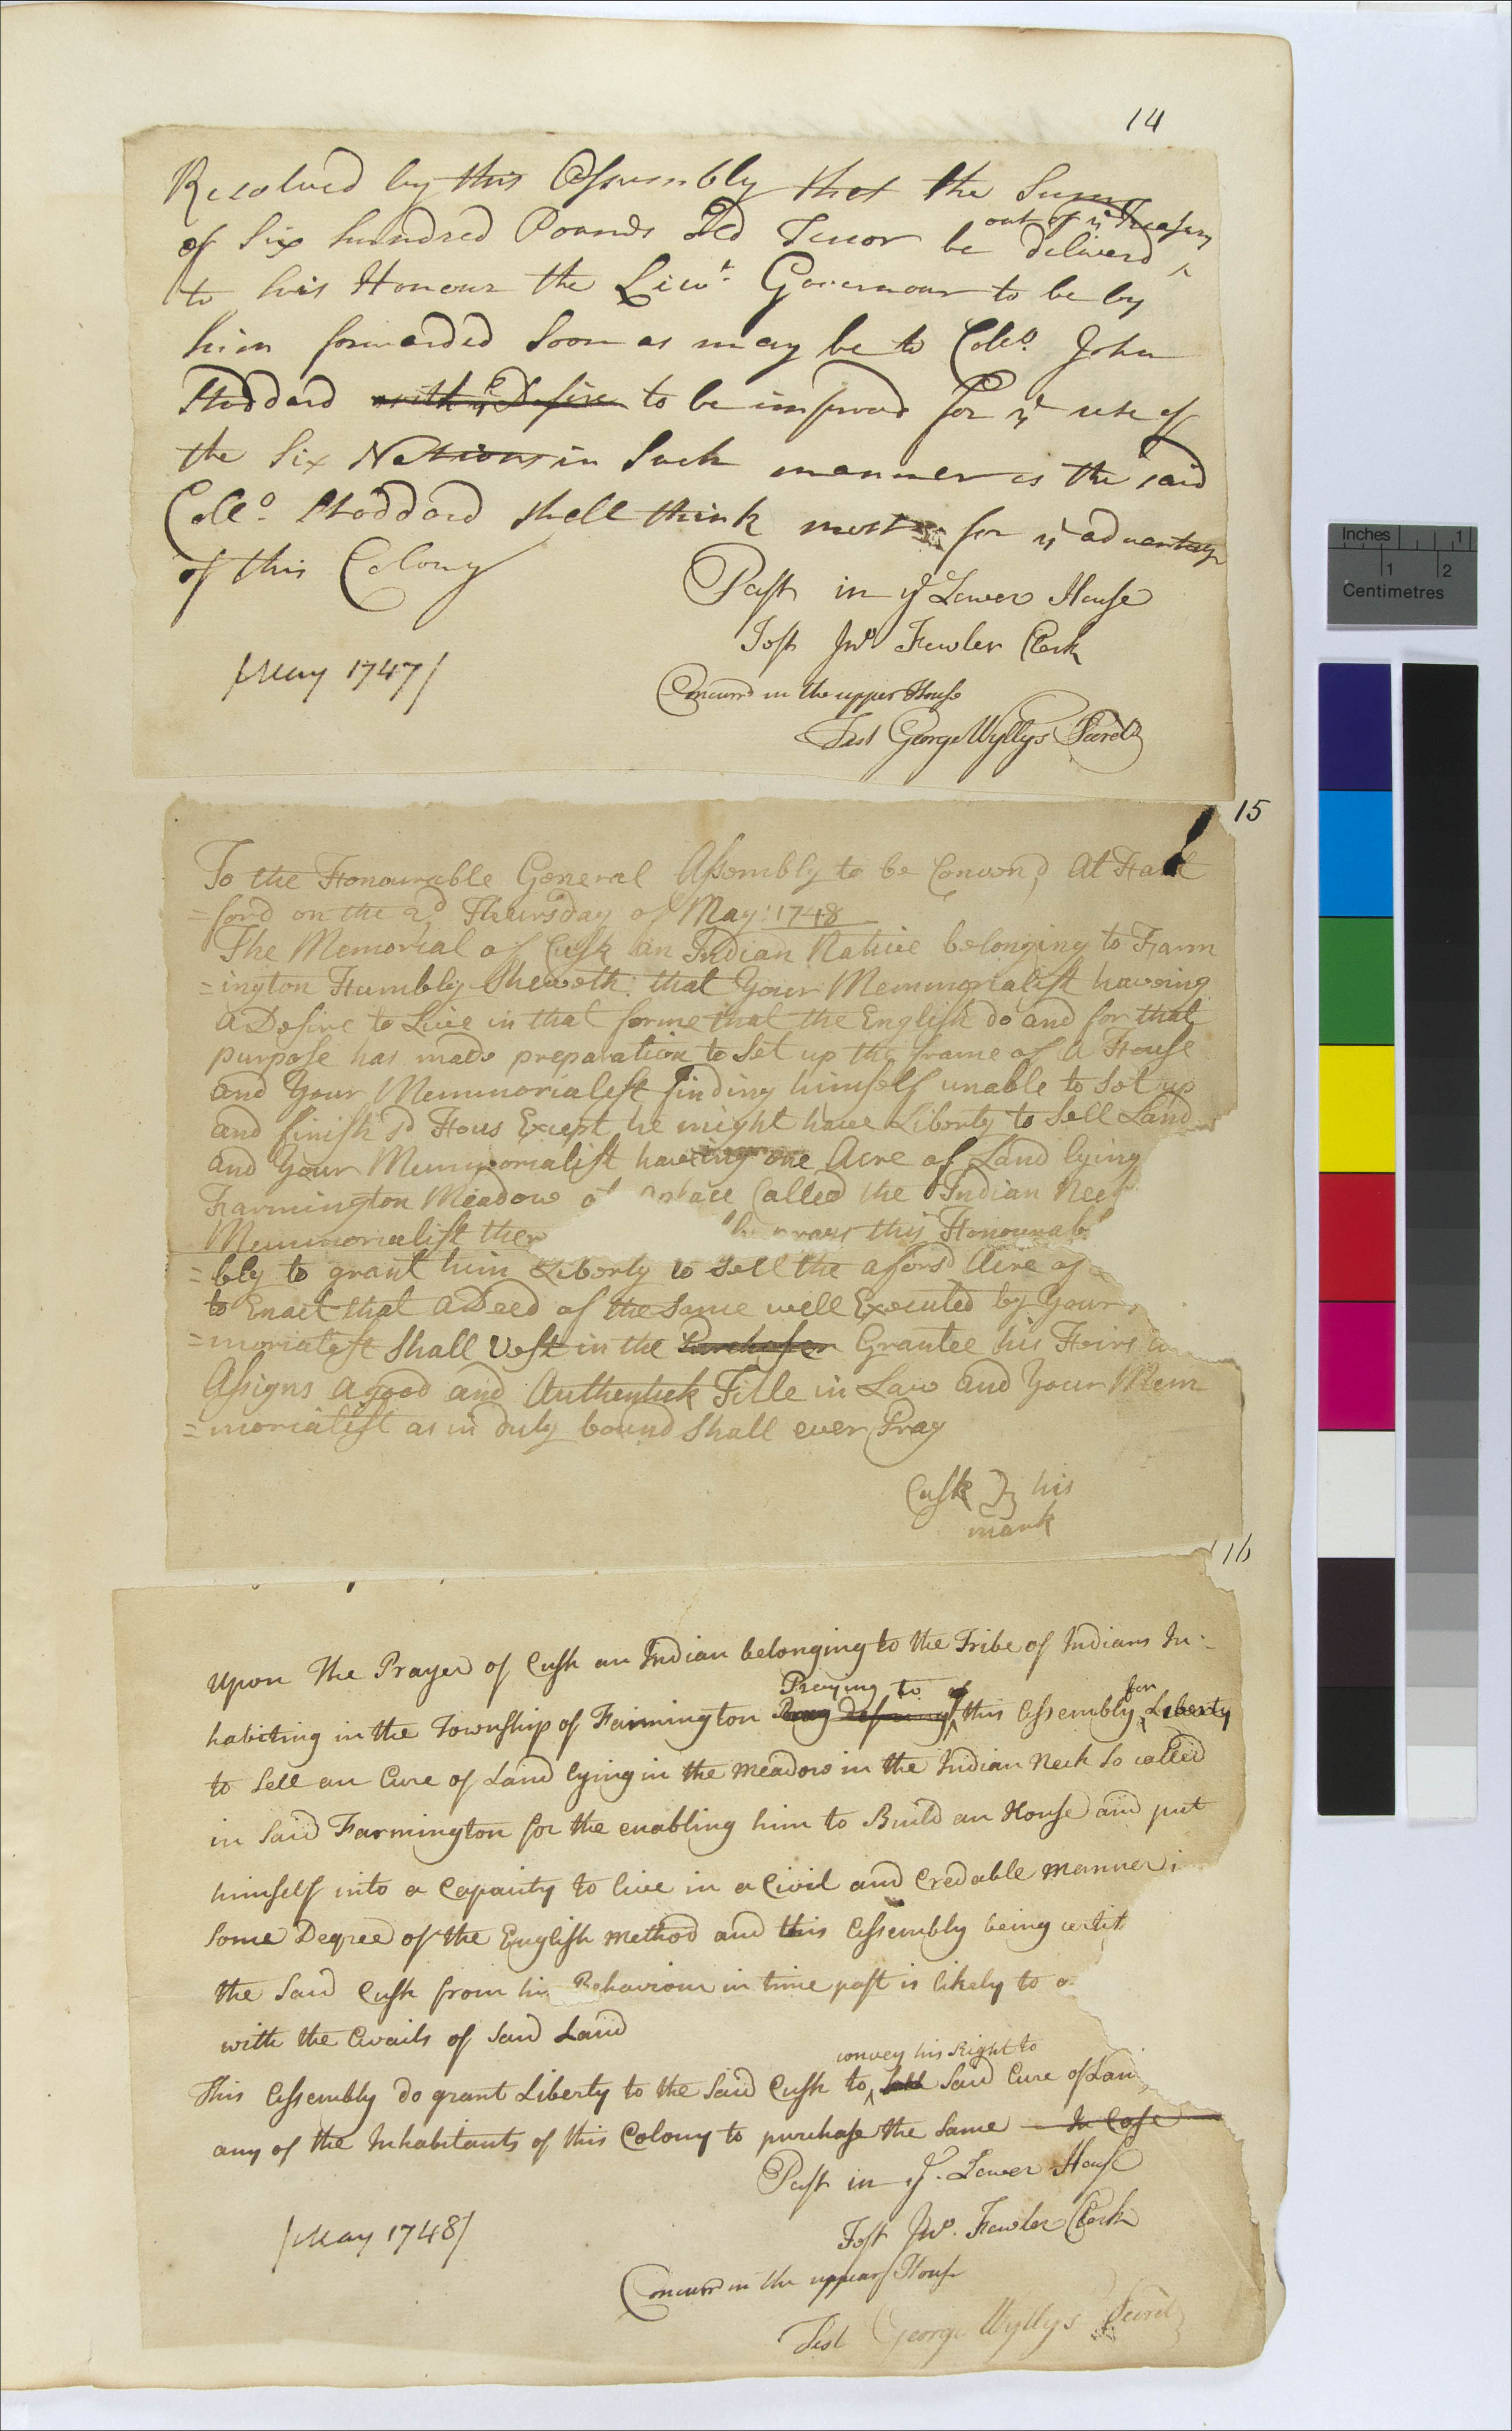 14
Resolved by this Assembly that the Summ
of Six hundred Pounds Old Tenor be delivered out of ye Treasury
to his Honour the Lieut. Governour to be by
him forwarded Soon as may be to Collo. John
Stoddard with ye Desire to be improved for ye use of
the Six Nations in Such manner as the said
Collo. Stoddard shall think most for ye advantage
of this Colony
Past in ye Lower House
Test Jno. Fowler Clerk
/May 1747/
Concurrd in the upper House
Test George Wyllys Secret
15
To the Honourable General Assembly to be Conven'd At Hart
=ford on the 2d Thursday of May: 1748
The Memorial of Cusk an Indian Native belonging to Farm
=ington Humbly Sheweth: that Your Memmorialist haveing
a Desire to Live in that forme that the English do and for that
purpose has made preparation to Set up the frame of a House
and Your Memmorialist finding himself unable to Set up
and finish sd Hous Except he might have Liberty to Sell Land
and Your Memmorialist haveing one Acre of Land lying
Farmington Meadow place Called the Indian Neck
Memmorialist prays this Honourab
=bly to grant him Liberty to Sell the aforsd Acre of
to Enact that a Deed of the Same well Executed by Your
=morialist Shall Vest in the Purchaser Grantee his Heirs
Assigns a good and Authentick Title in Law and Your Mem
=morialist as in duty bound Shall ever Pray
Cusk his
mark
16
Upon The Prayer of Cush an Indian belonging to the Tribe of Indians In-
habiting in the Township of Farmington Praying to this Assembly for Liberty
to Sell an Acre of Land lying in the meadow in the Indian Neck So called
in Said Farmington for the enabling him to Build an House and put
himself into a Capasity to live in a Civil and Credable manner i
Some Degree of the English method and this Assembly being certif
the Said Cush from his Behaviour in time past is likely to
with the Avails of Said Land
This Assembly do grant Liberty to the Said Cush to convey his Right to Sell Said Acre of Lan
any of the Inhabitants of this Colony to purchase the Same In Case
Past in ye. Lower House
Test Jno. Fowler Clerk
/May 1748/
Concurrd in the upper House
Test George Wyllys Secret
Inches 1
1 2
Centimetres